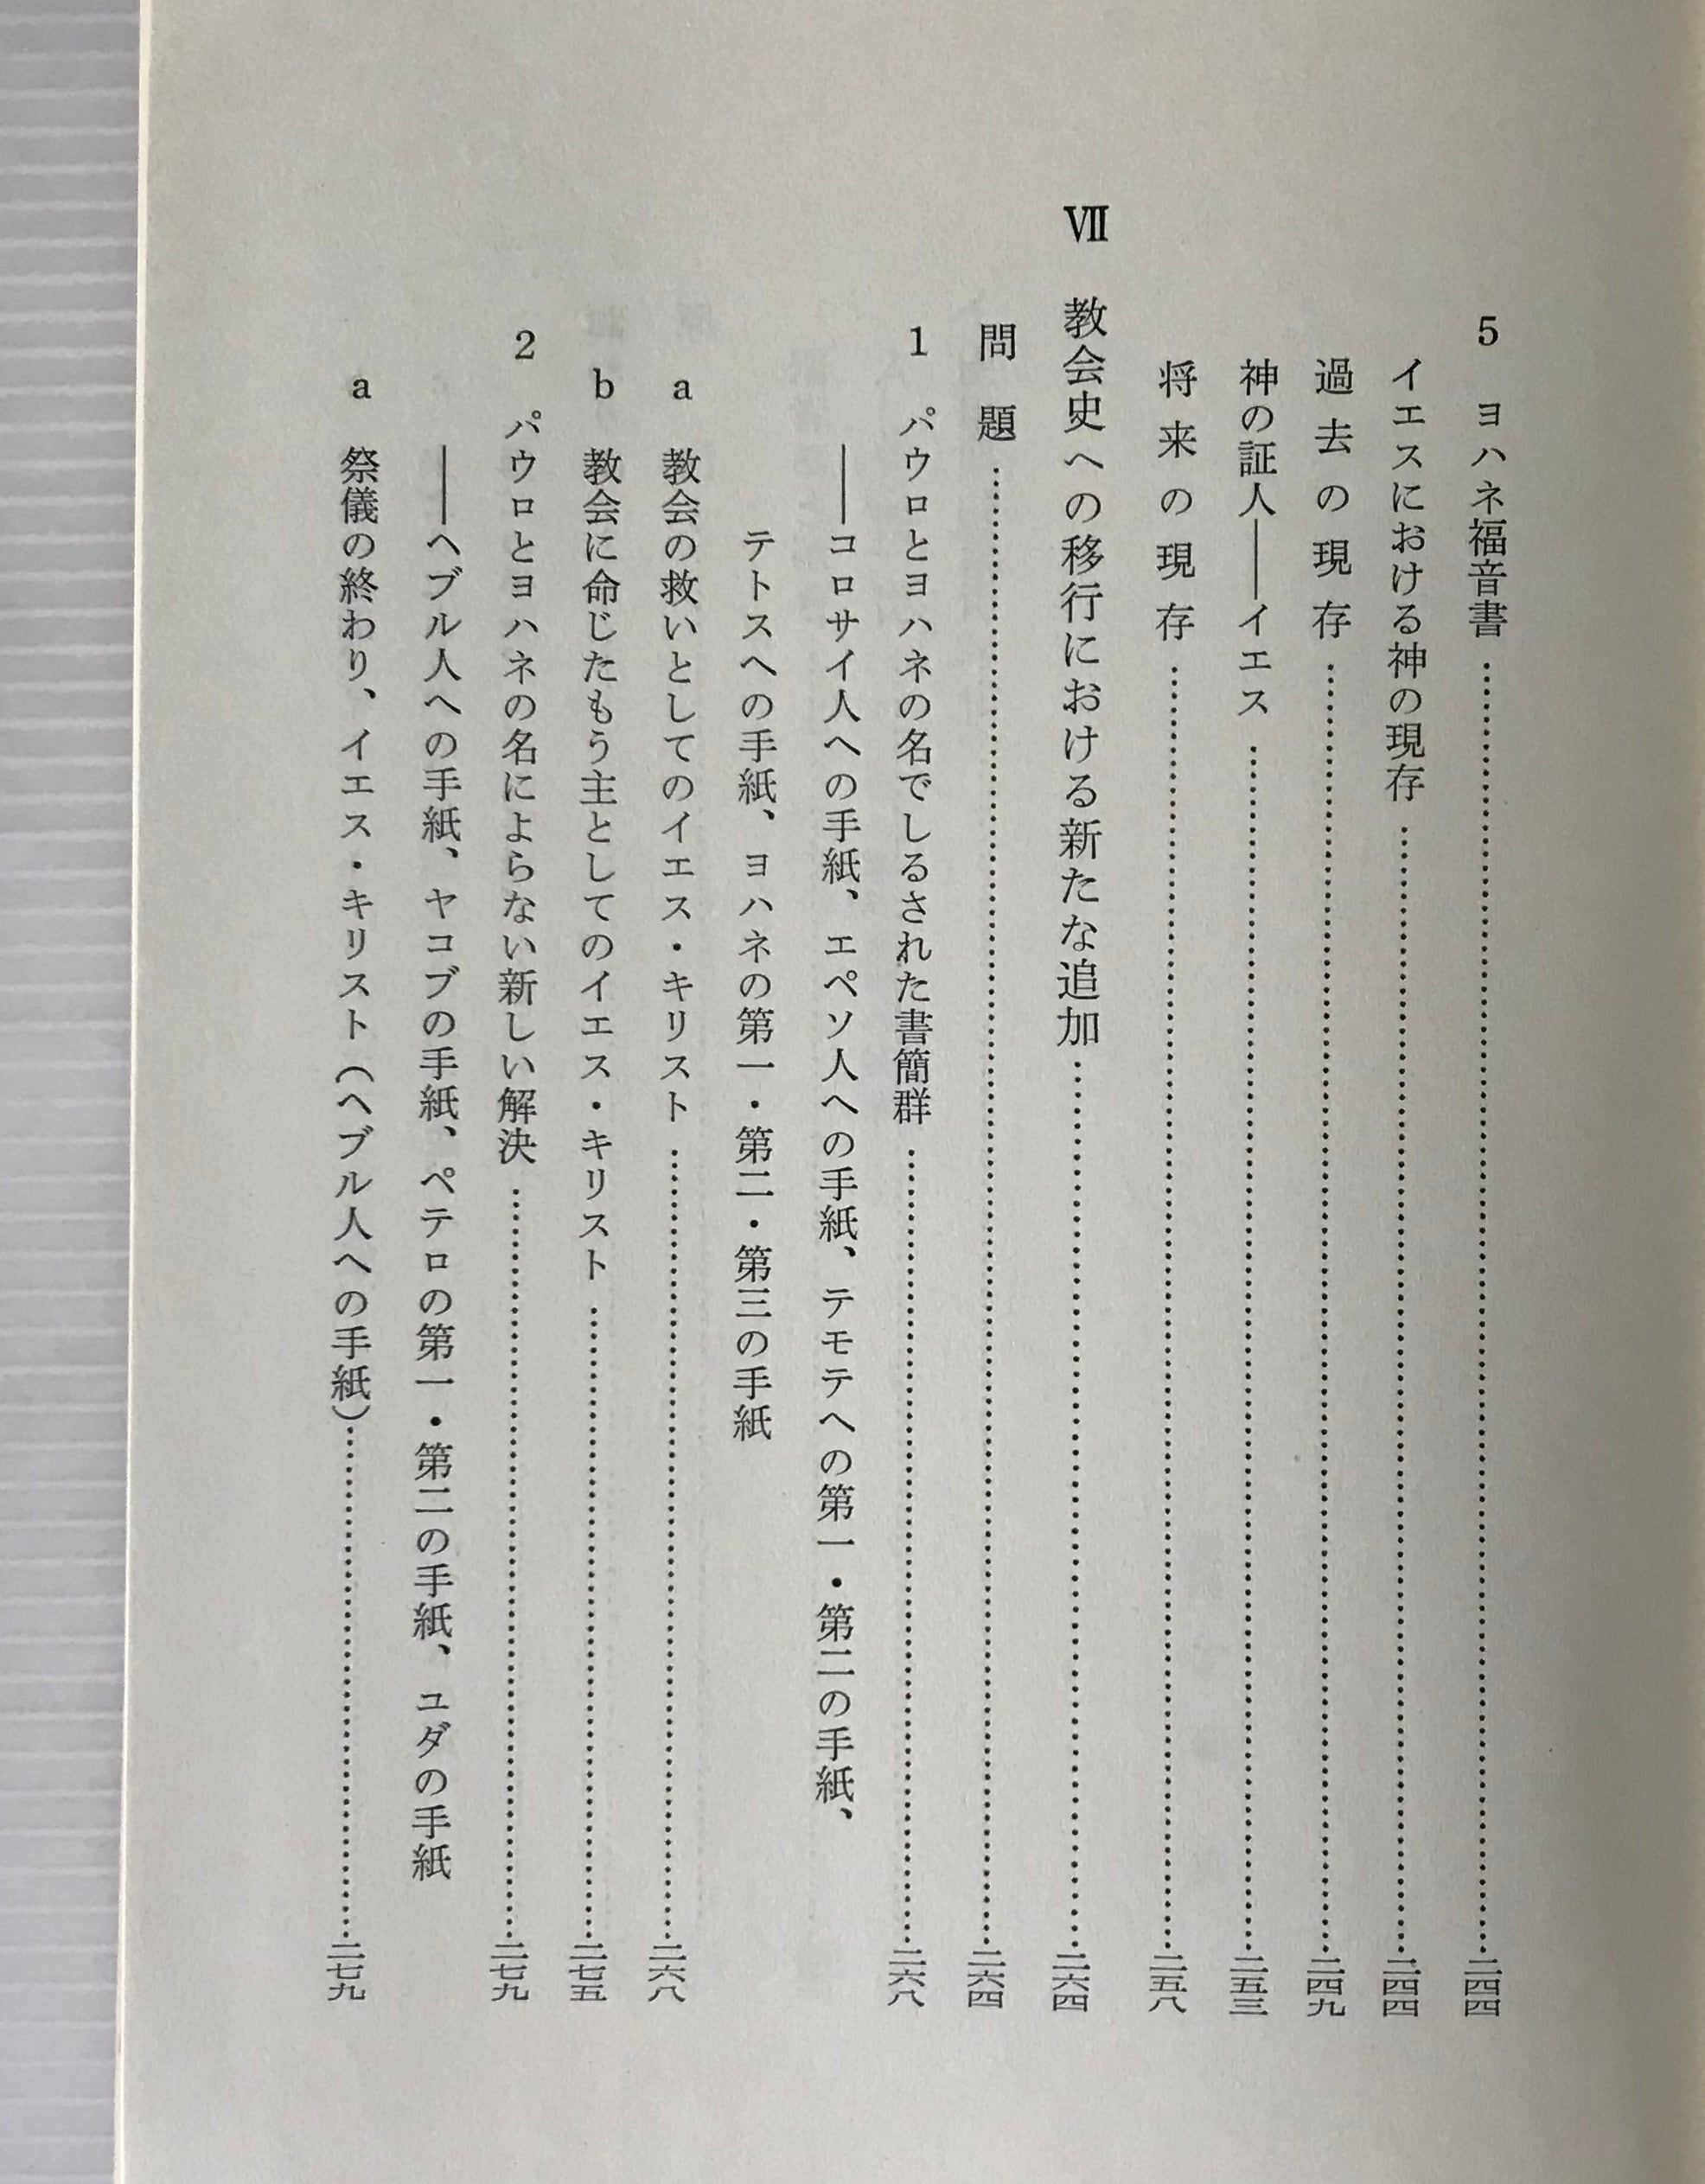 5 ヨハネ福音書……………二四四
イエスにおける神の現存……………二四四
過去の現存……………二四九
神の証人――イエス……………二五三
将来の現存……………二五八
Ⅶ 教会史への移行における新たな追加……………二六四
問題……………二六四
1 パウロとヨハネの名でしるされた書簡群……………二六八
――コロサイ人への手紙、エペソ人への手紙、テモテへの第一・第二の手紙、
テトスへの手紙、ヨハネの第一・第二・第三の手紙
a 教会の救いとしてのイエス・キリスト……………二六八
b 教会に命じたもう主としてのイエス・キリスト……………二七五
2 パウロとヨハネの名によらない新しい解決……………二七九
――ヘブル人への手紙、ヤコブの手紙、ペテロの第一・第二の手紙、ユダの手紙
a 祭儀の終わり、イエス・キリスト(ヘブル人への手紙)……………二七九